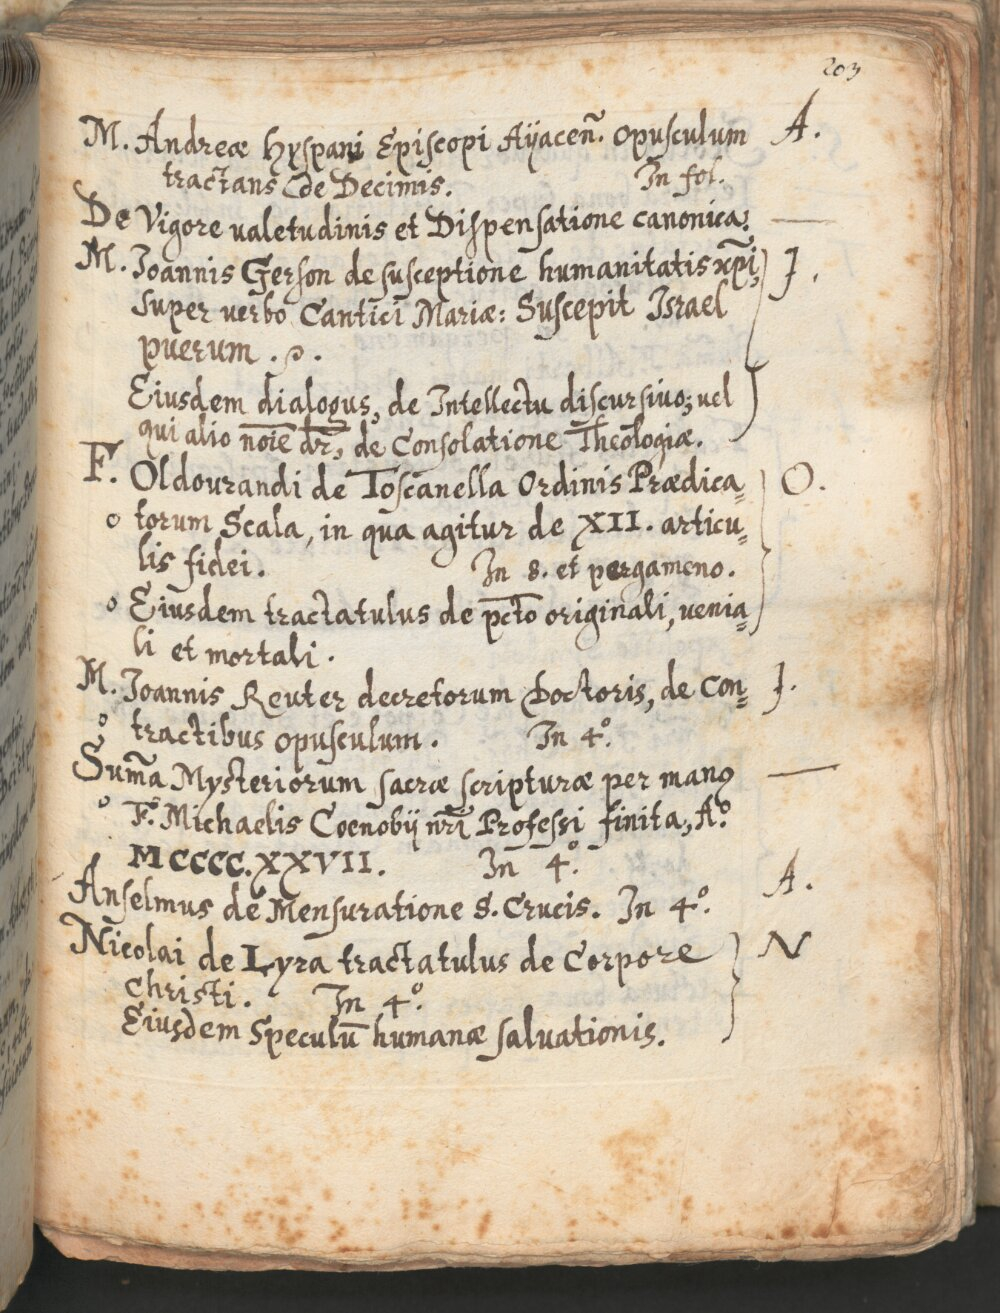 203
M. Andreæ Hyspani Episcopi Aÿacen̄. Opusculum A.
tractans de Decimis. In fol.
De Vigore ualetudinis et Dispensatione canonica. —
M. Joannis Gerson de susceptione humanitatis xp̄i, J.
super uerbo Cantici Mariæ: Suscepit Israel
puerum . ꝛ .
Eiusdem dialogus, de Intellectu discursiuo; uel
qui alio noīe dr̄, de Consolatione Theologiæ.
F. Oldourandi de Toscanella Ordinis Prædica= O.
o torum Scala, in qua agitur de XII. articu=
lis fidei. In 8. et pergameno.
o Eiusdem tractatulus de pc̄to originali, uenia=
li et mortali.
M. Joannis Reuter decretorum Doctoris, de Con= J.
o tractibus opusculum. In 4.°
Sum̄a Mysteriorum sacræ scripturæ per manꝯ —
o F. Michaelis Coenobij nr̄i Professi finita, A.°
MCCCC.XXVII. In 4.°
Anselmus de Mensuratione S. Crucis. In 4.° A.
Nicolai de Lyra tractatulus de Corpore N
Christi. In 4.°
Eiusdem Speculū humanæ saluationis.